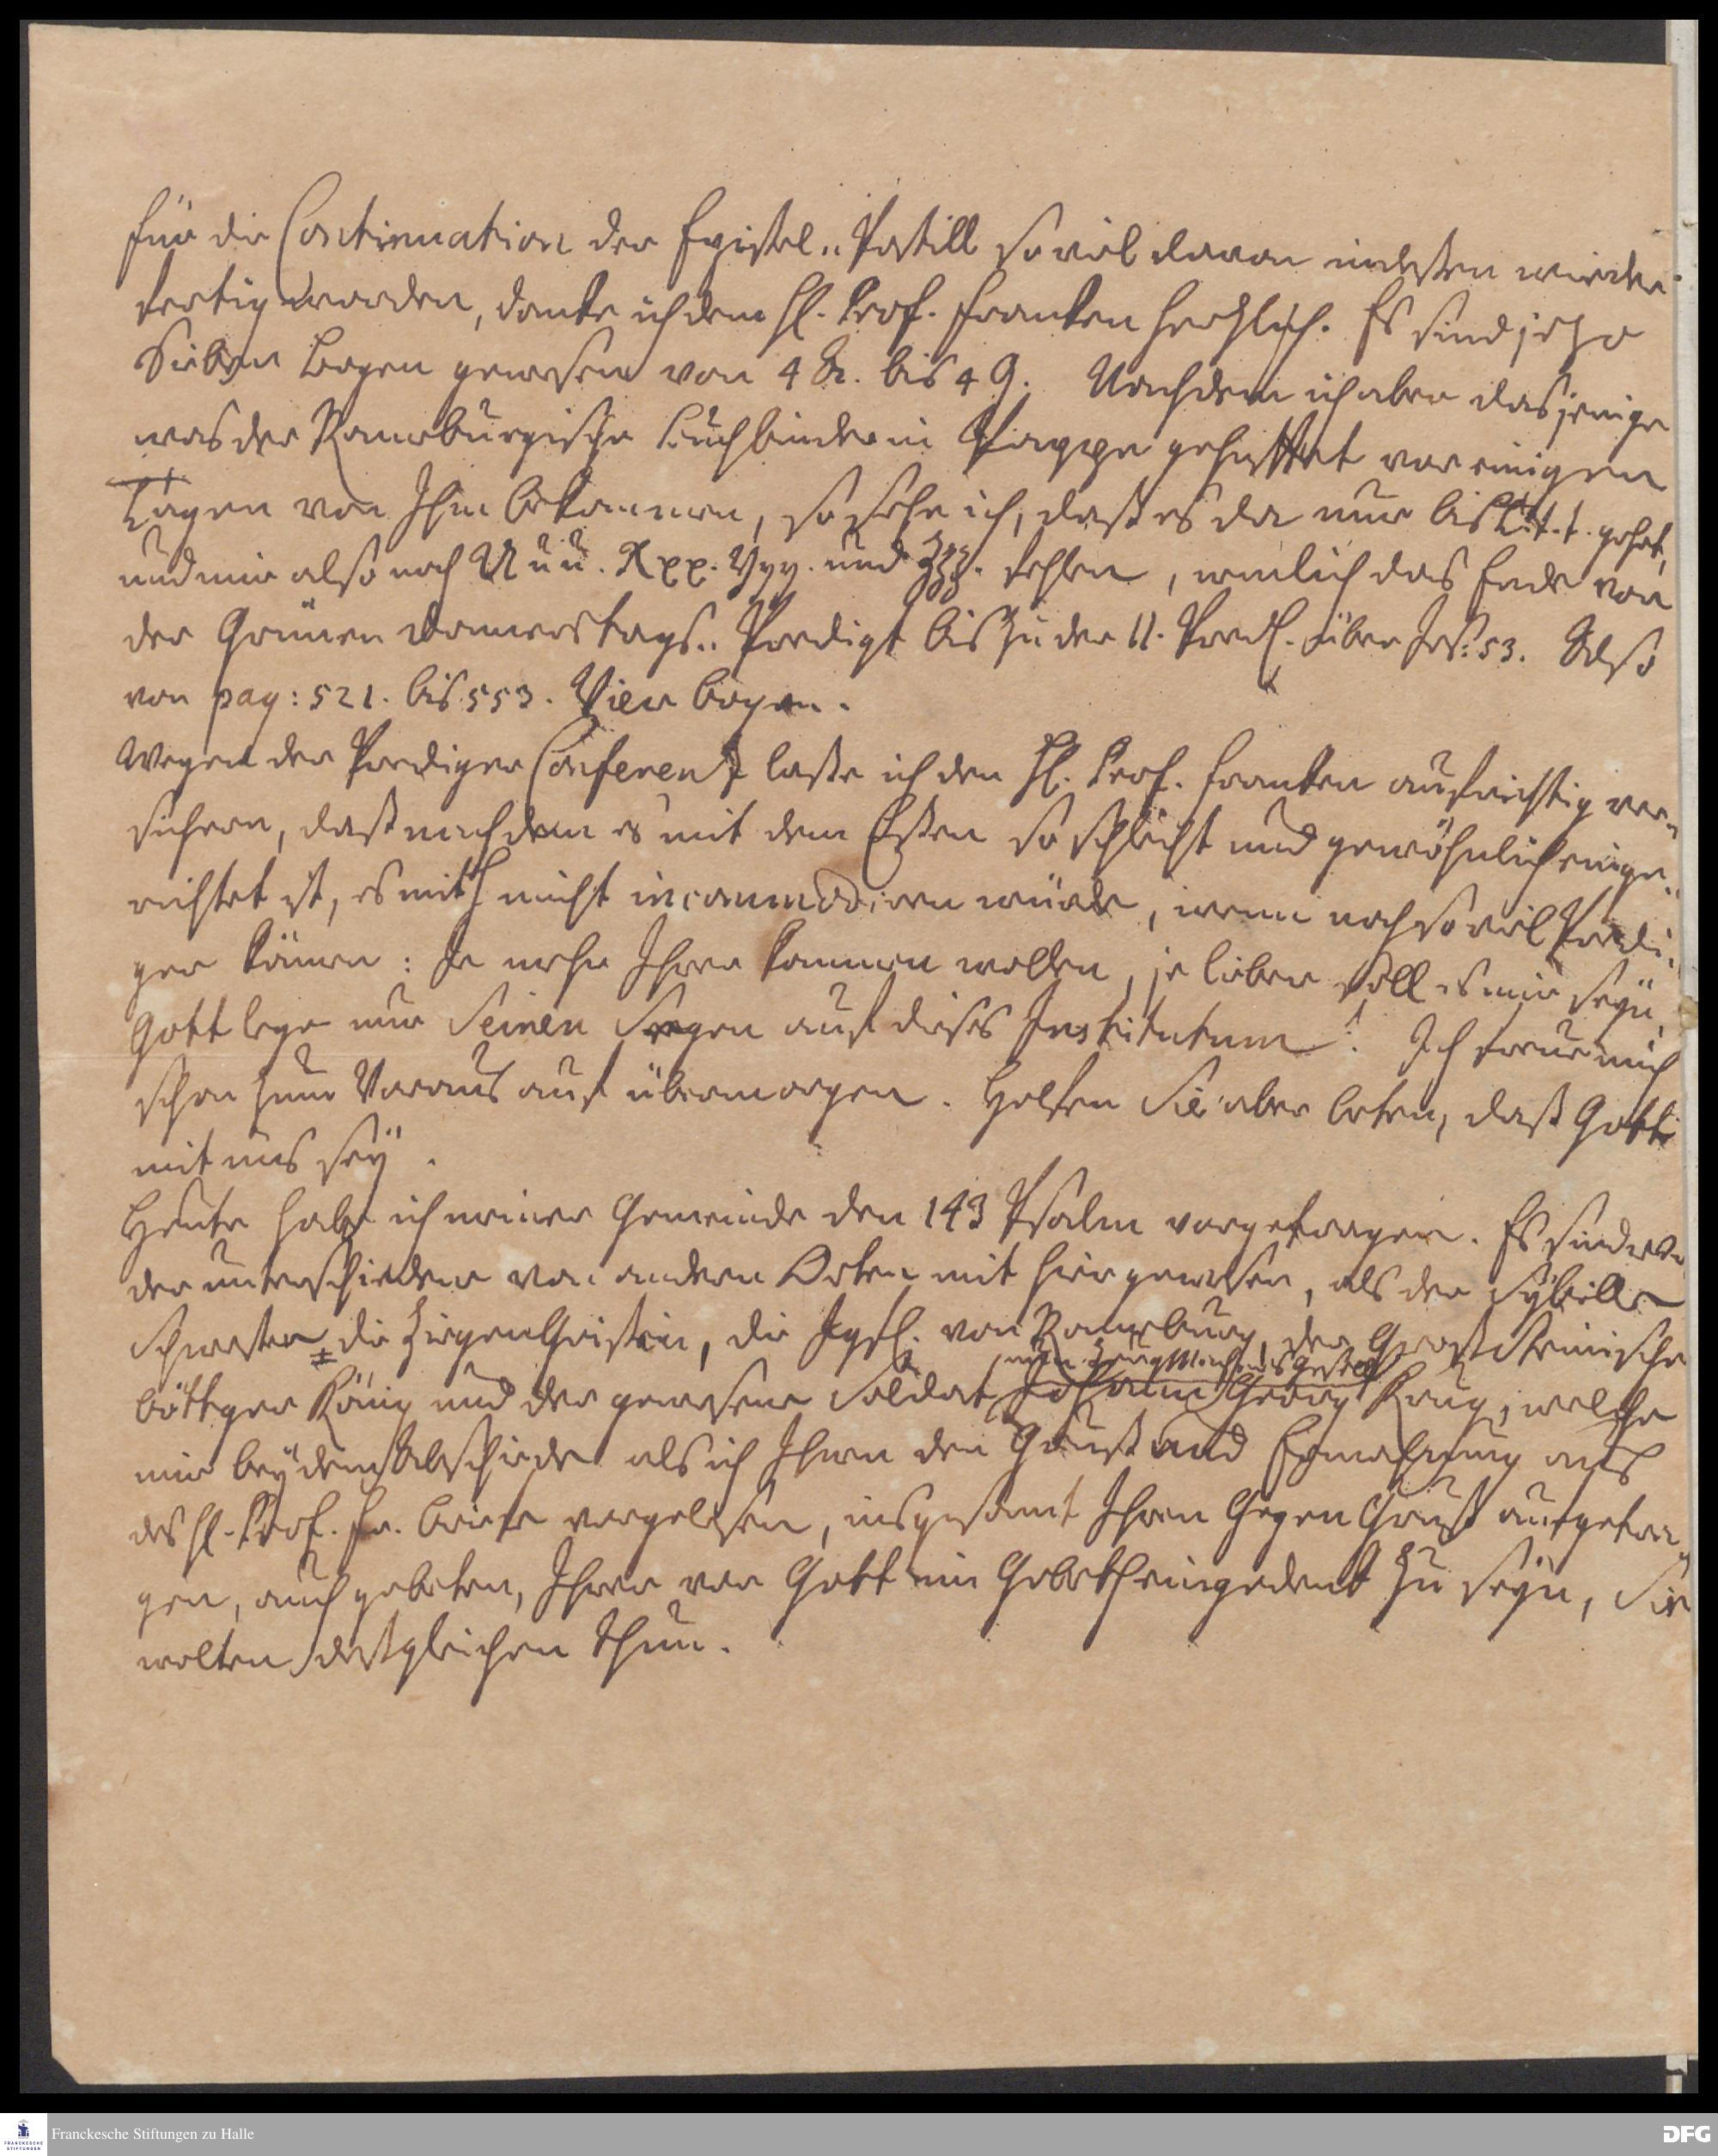 für die Continuation der Epistel-Postill so viel davon indeßen wieder
fertig worden, danke ich dem H. Prof. Francken hertzlich. Es sind jetzo
Sieben Bogen gewesen von 4 A. bis 4 G. Nachdem ich aber dasjenige
was der Ranisburgische Buchbinder in Pappe gehefftet vor einigen
Tagen von Ihm bekommen, so sehe ich, daß es da nur bis Lit. t. gehet,
und mir also noch Uuu. Xxx. Yyy. und Zzz. fehlen, nemlich das Ende von
der Grünen Donnerstags-Predigt bis zu der 11. Pred. über Jes: 53. Also
von pag: 521. bis 553. Vier bogen.
Wegen der Prediger Conferentz laße ich den H. Prof. Francken aufrichtig ver-
sichern, daß nachdem es mit dem Eßen so schlecht und gewöhnlich einge-
richtet ist, es mich nicht incommodiren würde, wenn noch so viel Predi-
ger kämen: Je mehr Ihrer kommen wollen, je lieber soll es mir seyn,
Gott lege nur Seinen Segen auf dieses Institutum! Ich freue mich
schon zum Voraus auf übermorgen. Helfen Sie aber beten, daß Gott
mit uns sey.
Heute habe ich meiner Gemeinde den 143 Psalm vorgetragen. Es sind wie-
der unterschiedene von andern Orten mit hier gewesen, als der Sybille
Schwester die Ziegen Christin, die Jgfl. von der Großsteinische
Böttger König und der gewesene Soldat
nun Zeugmachers Gesell
Johann Georg Krug, welche
mir bey dem Abschiede als ich Ihnen den Gruß und Ermahnung aus
des H. Prof. Fr. briefe vorgelesen, insgesamt Ihren Gegen Gruß aufgetra-
gen, auch gebeten, Ihrer vor Gott im Gebeth eingedenk zu seyn, Sie
wolten desgleichen thun.
Franckesche Stiftungen zu Halle
DFG